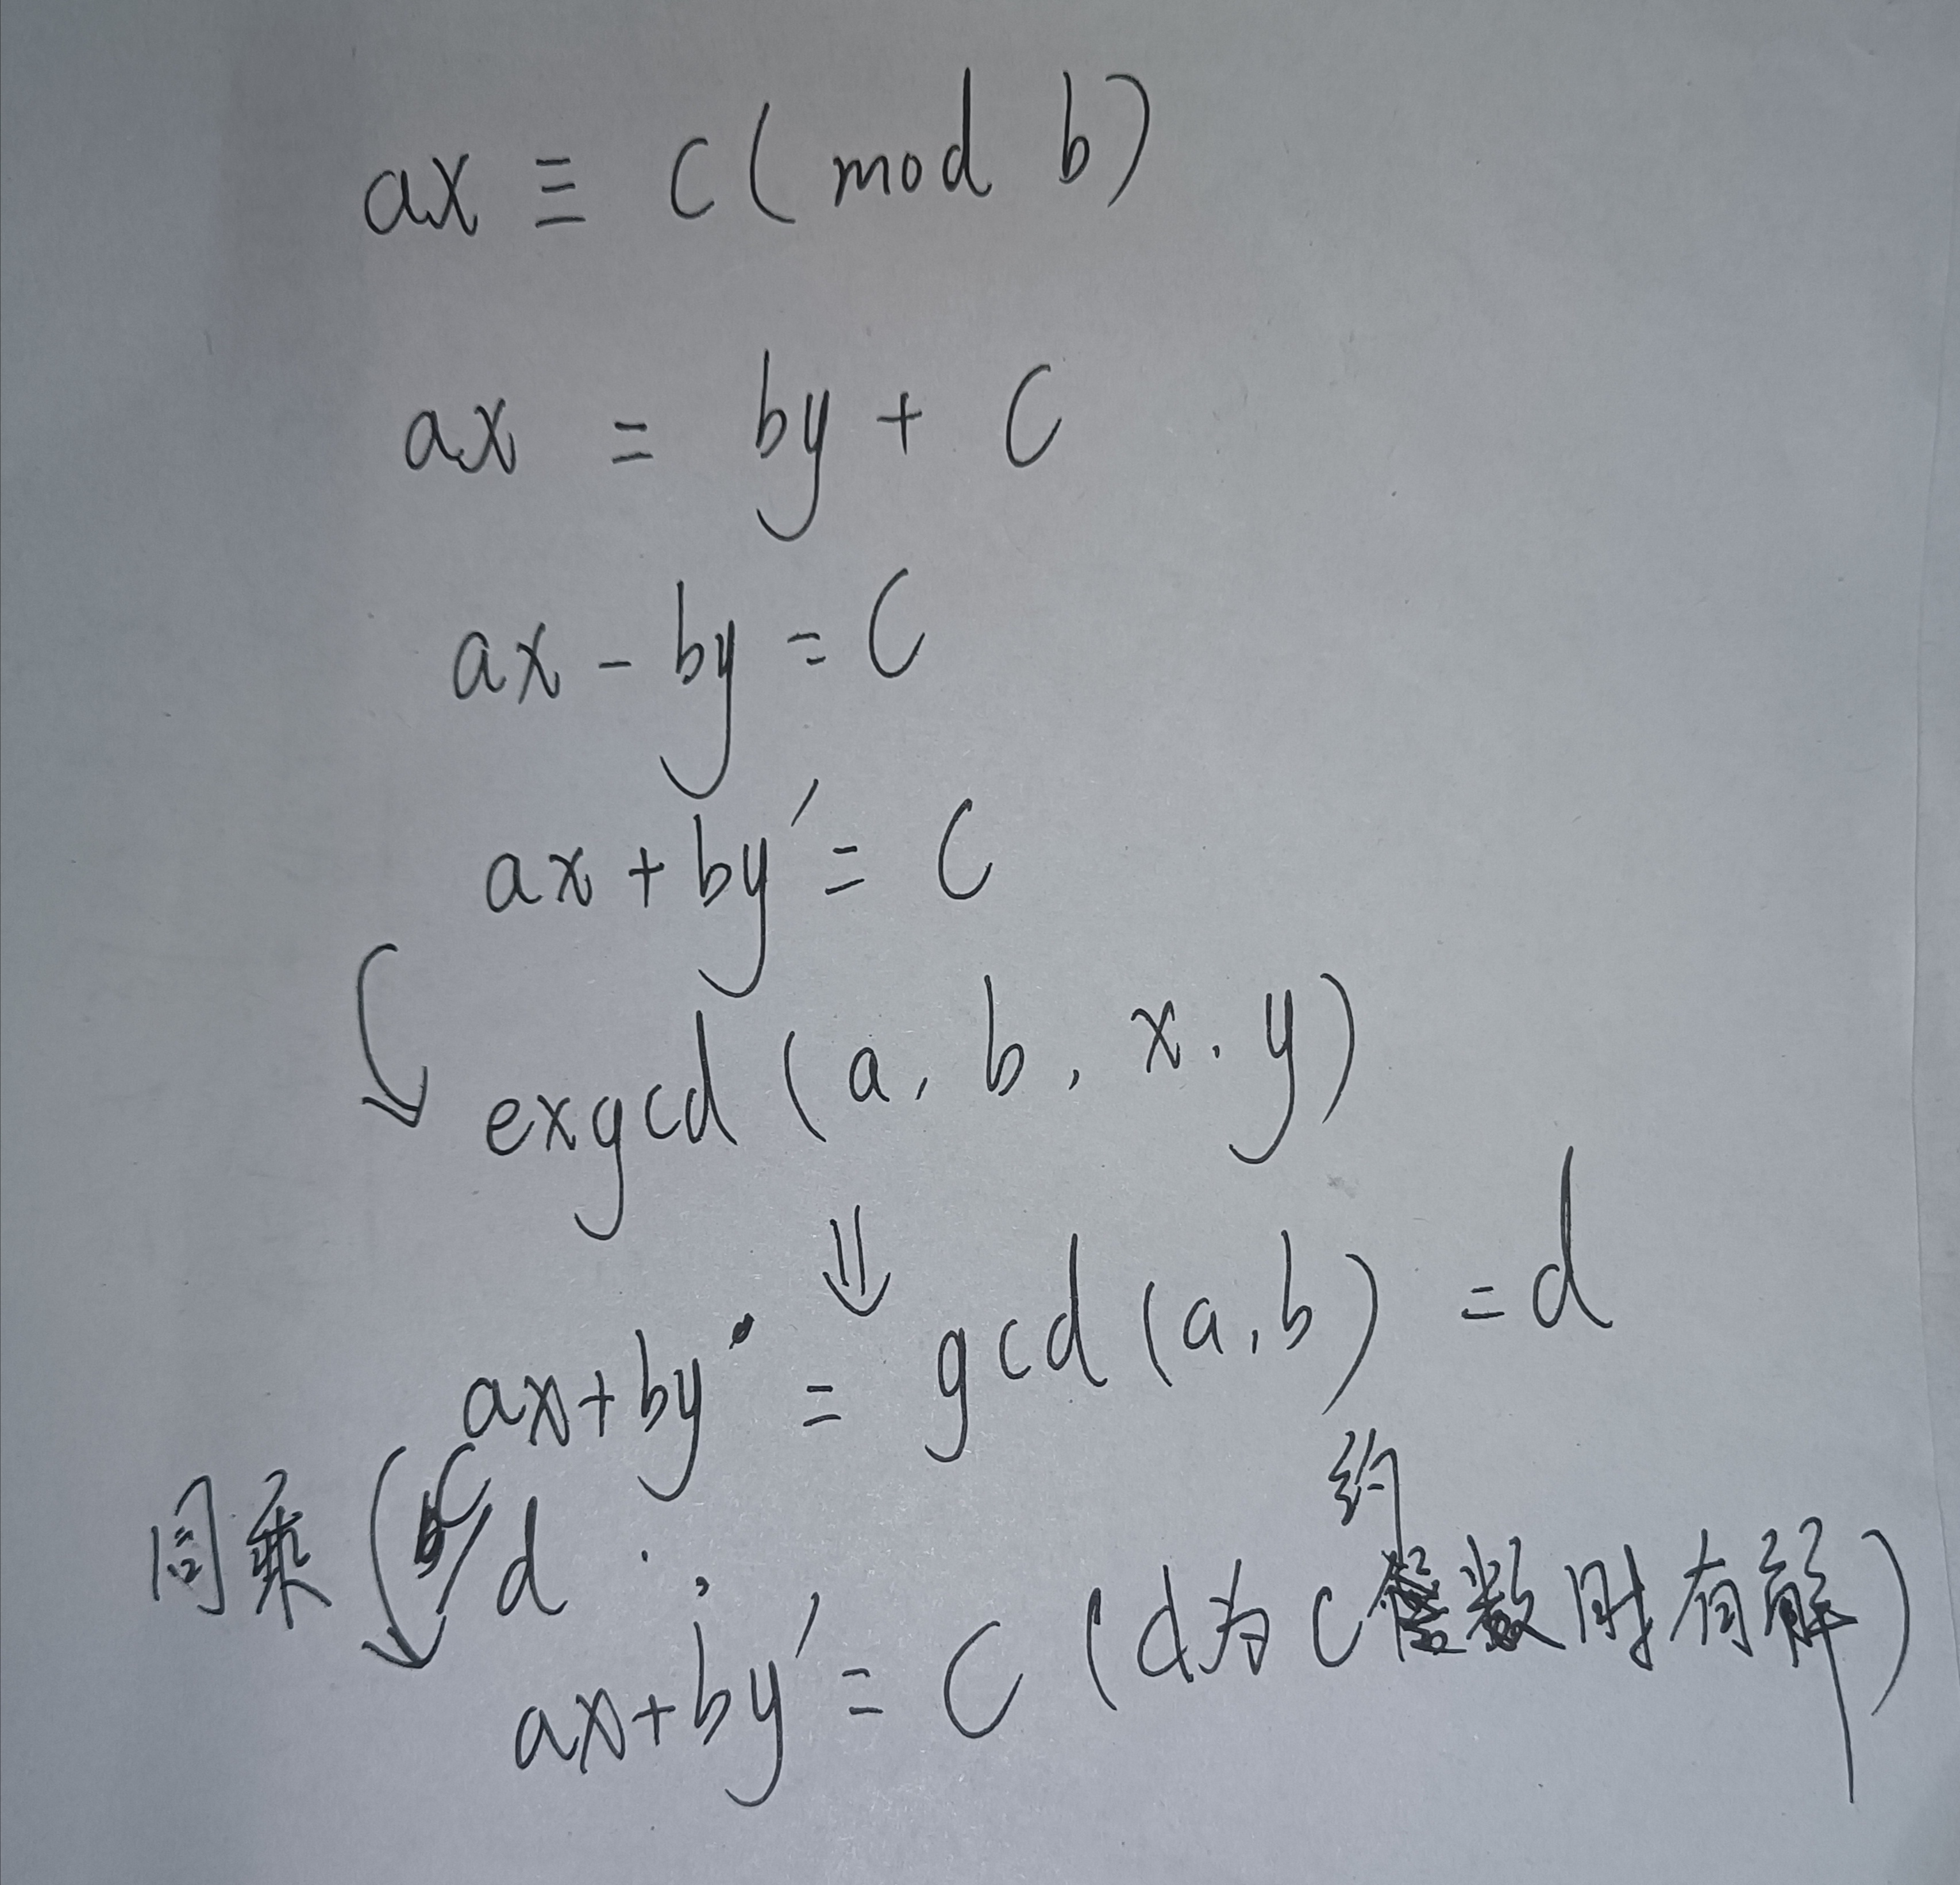 ax ≡ c ( mod b )
ax = by + c
ax - by = c
ax + by′ = c
exgcd ( a, b, x. y )
ax+by = gcd (a,b) = d
同乘 c/d
ax+by′ = c (d为c约数时有解)